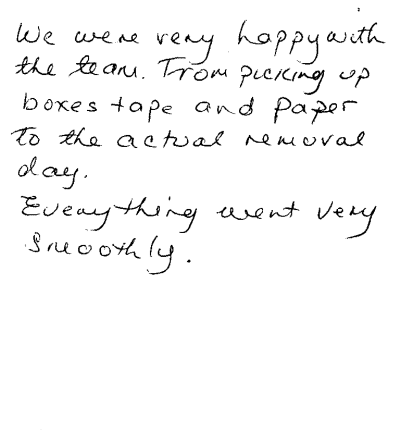 We were very happy with
the team. From picking up
boxes tape and paper
to the actual removal
day.
Everything went very
smoothly.